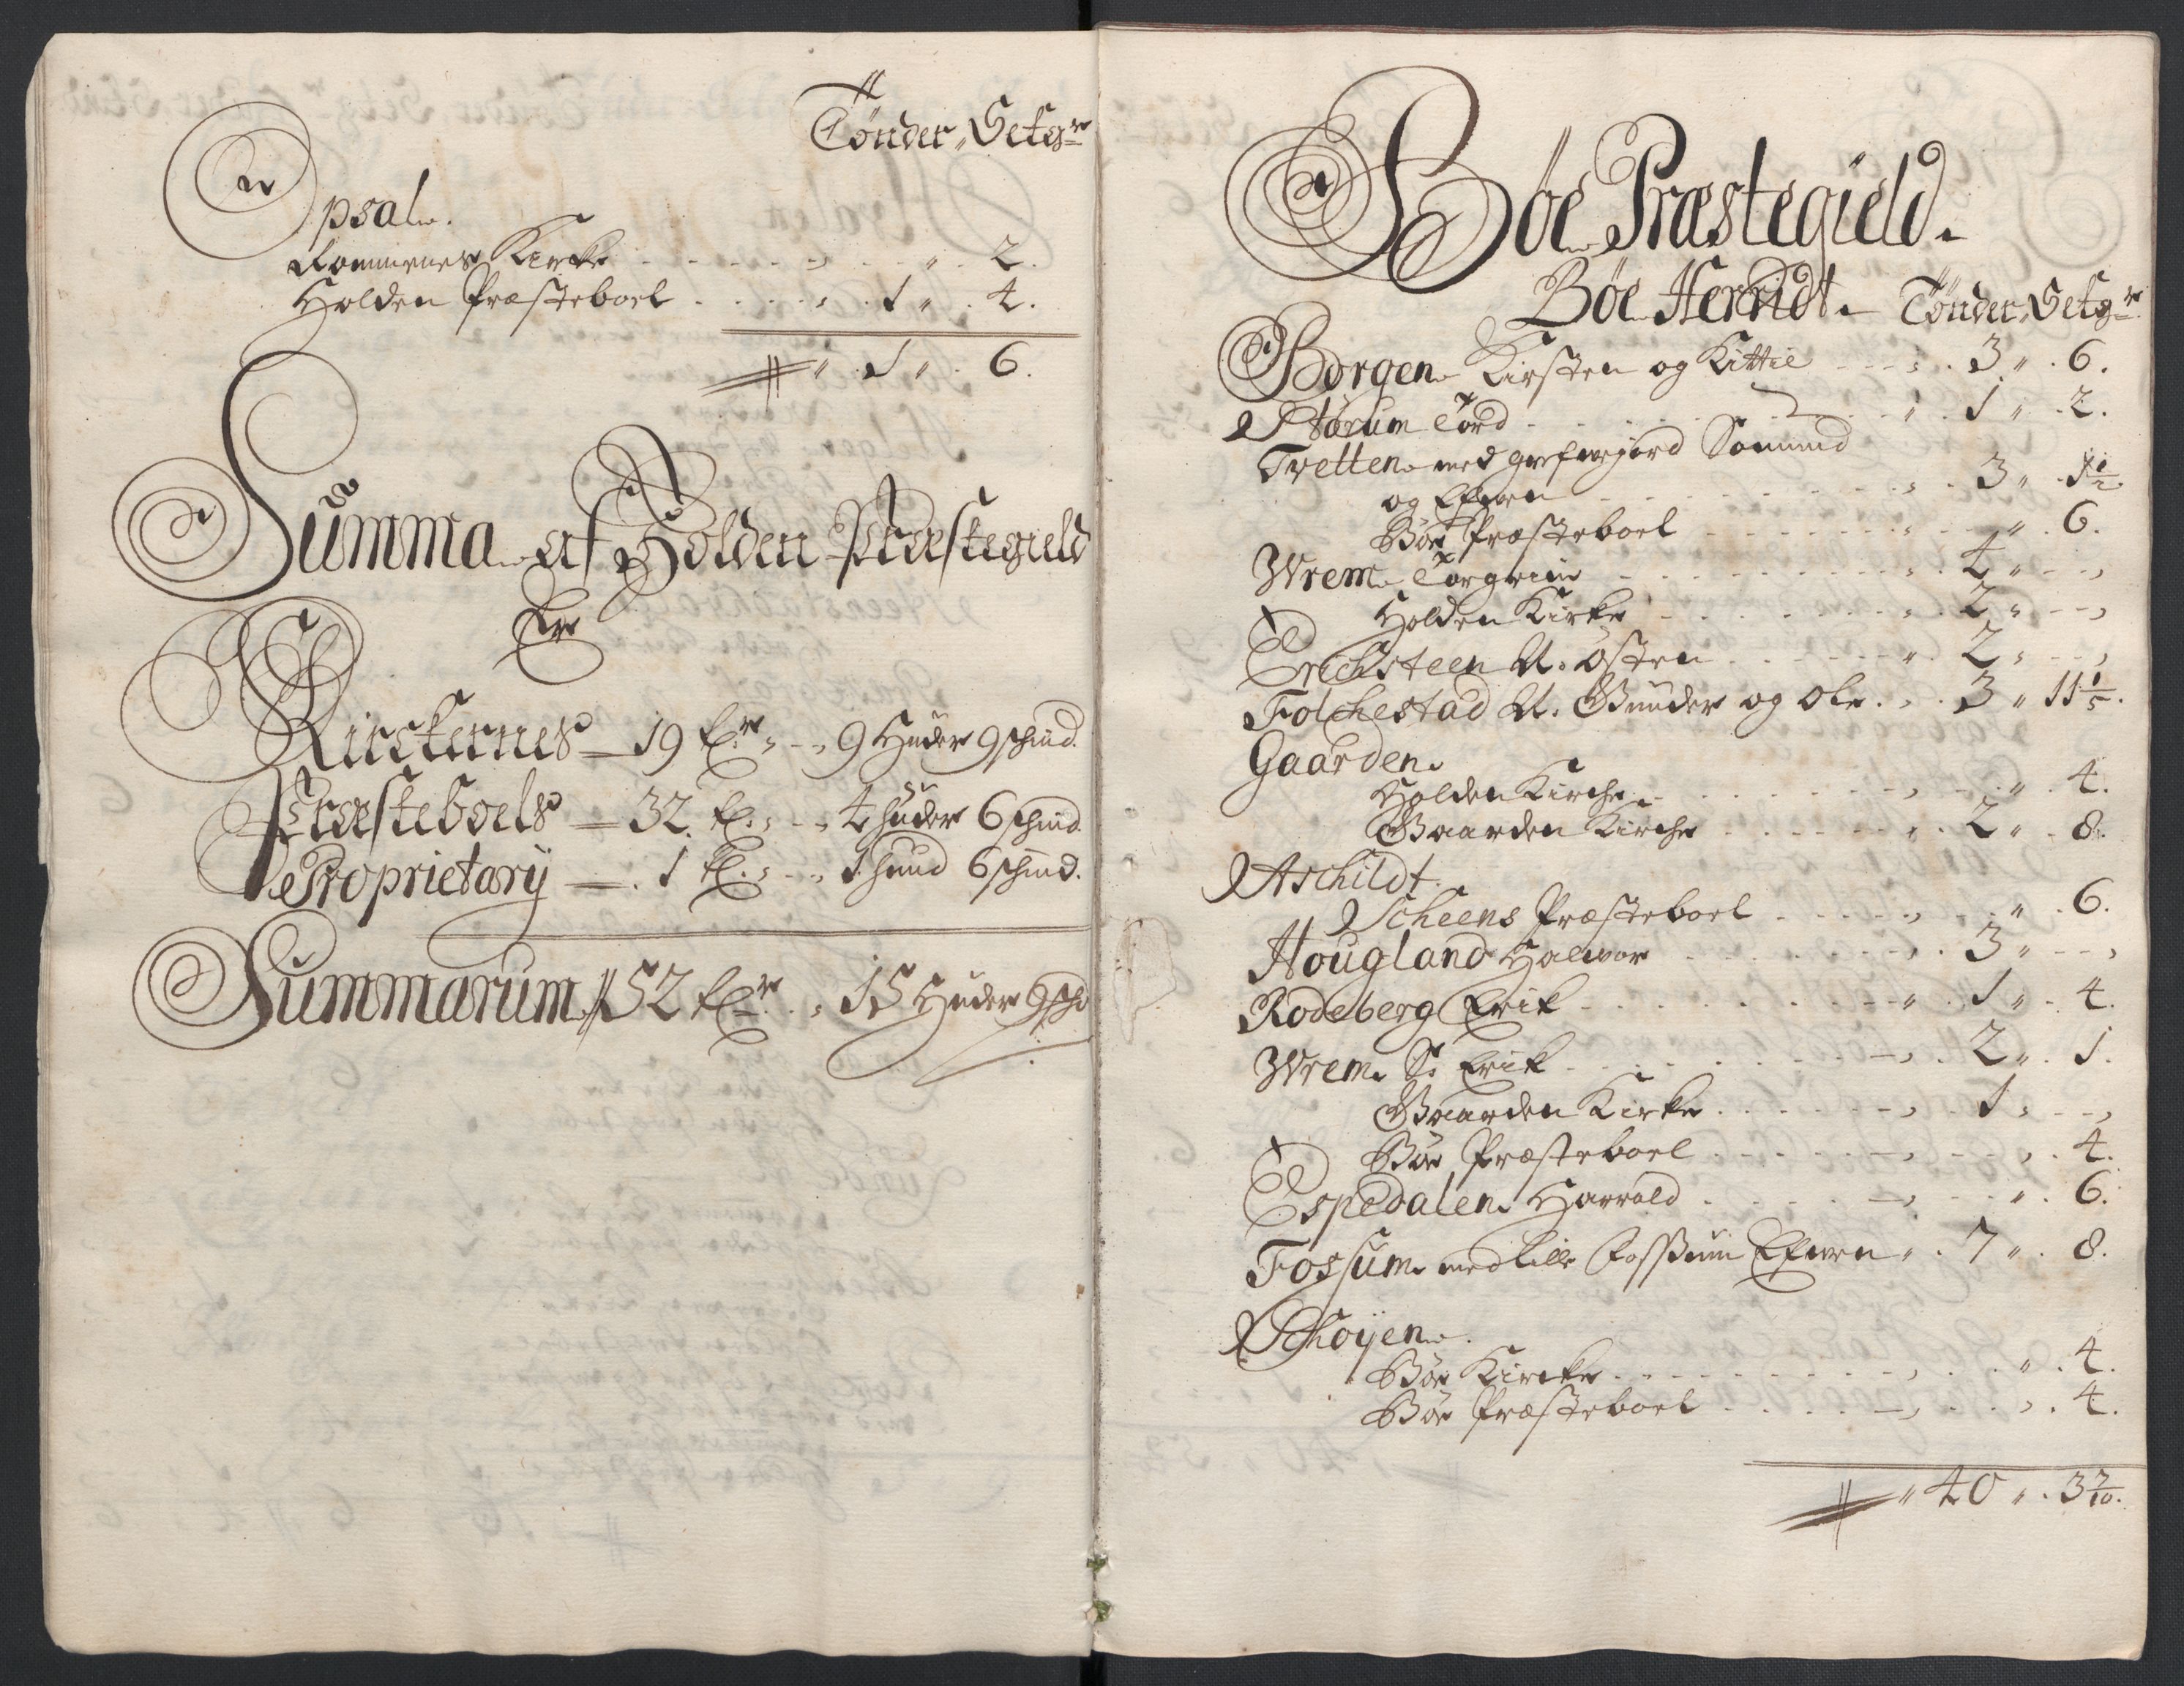 Tønder, Setgr
Opsal.
Rommenes Kirke - - - - - „ 2.
Holden Præsteboel . . . . . 1 „ 4.
„ 1 „ 6.
Summa af Holden Præstegield
Er
Kirckernes — 19 „ - „ 9 Huder 9 schind.
Præsteboels — 32 „ - „ 4 huder 6 schind.
Proprietary — . 1 „ - „ 1 huud 6 schind.
Summarum 52 „ 15 Huder 9 sch
Bøe Præstegield.
Bøe Herridt. Tønder, Setgr
Borgen Kirsten og Kittil - - - „ 3 „ 6.
Størum Tord - - - - „ 1 „ 2.
Tvetten med grefvejord Somund
og Efven - - - - „ 3 „ 1 1/2.
Bøe Præsteboel - - - - „ 6.
Wrem Torgrim - - - - „ 4 „ - - „
Holden Kirke - - - - „ 2 „ - - „
Erichsteen N. Østen - - - - „ 2 „ - - „
Folchestad N. Gunder og Ole . „ 3 „ 11 1/5.
Gaarden.
Holden Kirche - - - - „ 4.
Gaarden Kirche - - - - „ 2 „ 8.
Aschildt.
Scheens Præsteboel - - - - „ 6.
Hougland Halvor - - - - „ 3 „ - - „
Rodeberg Erik - - - - „ 1 „ 4.
Wrem S. Erik - - - - „ 2 „ 1.
Gaarden Kirke - - - - „ 1 „ - - „
Bøe Præsteboel - - - - „ 4.
Espedalen Harrald - - - - „ 6.
Fossum med lille Fossum Efven „ 7 „ 8.
Schoyen.
Bøe Kircke - - - - „ 4.
Bøe Præsteboel - - - - „ 4.
„ 40 „ 3 7/10.